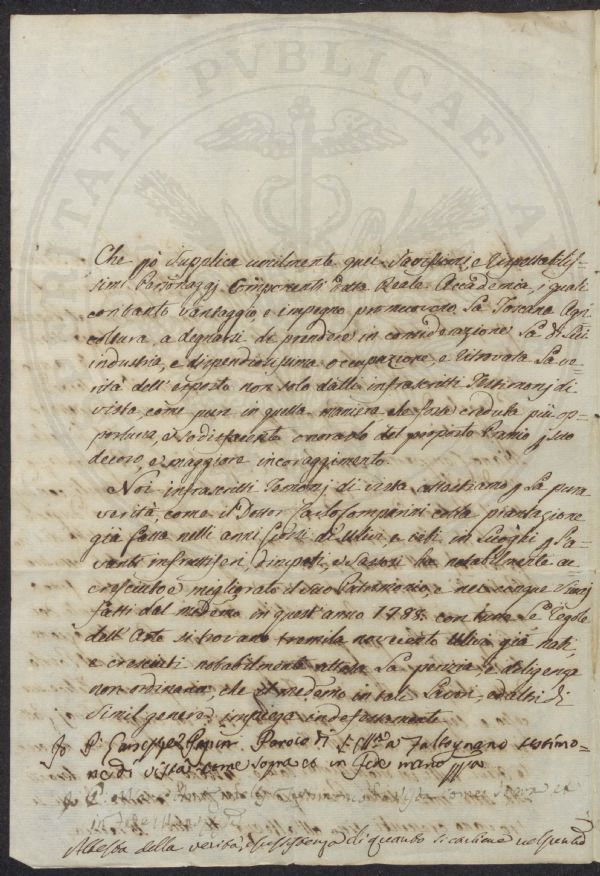 PROSPERITATI PUBLICAE A
Che però Supplica umilmente quei Savissimi, e Rispettabilis-
simi Personaggi Componenti detta Reale Accademia, i quali
con tanto vantaggio, e impegno promuovono La Toscana Agri-
coltura a degnarsi di prendere in considerazione La di Lui
industria, e dispendiosissima occupazione, e ritrovata La ve-
rità dell' esposto non solo dalli infrascritti Testimonj di
vista come pure in quella maniera che sarà creduta più op-
portuna, e sodisfacente onorarlo del proposto Premio p suo
decoro, e maggiore incoraggimento.
Noi infrascritti Testimonj di vista attestiamo p La pura
verità, come il Dottor colla piantazione
già fatta nelli anni di Ulivi, e viti, in Luoghi p L'a-
vanti infruttiferi, dirupati, e Sassosi ha notabilmente ac
cresciuto e migliorato il suo Patrimonio, e nei cinque
fatti dal medemo in quest' anno 1788. con tutte Le regole
dell' Arte si trovano tremila novecento Ulivi già nati,
e cresciuti notabilmente attesa La perizia, e diligenza
non ordinaria che il medemo in tali Lavori, ed altri di
simil genere impiega indefessamente.
Io P. Giuseppe Papini Paroco di a Faltognano testimo-
ne di vista come sopra in fede mano pp a
Io vista come Sopra
in fede
della verità, di quanto si contiene nel